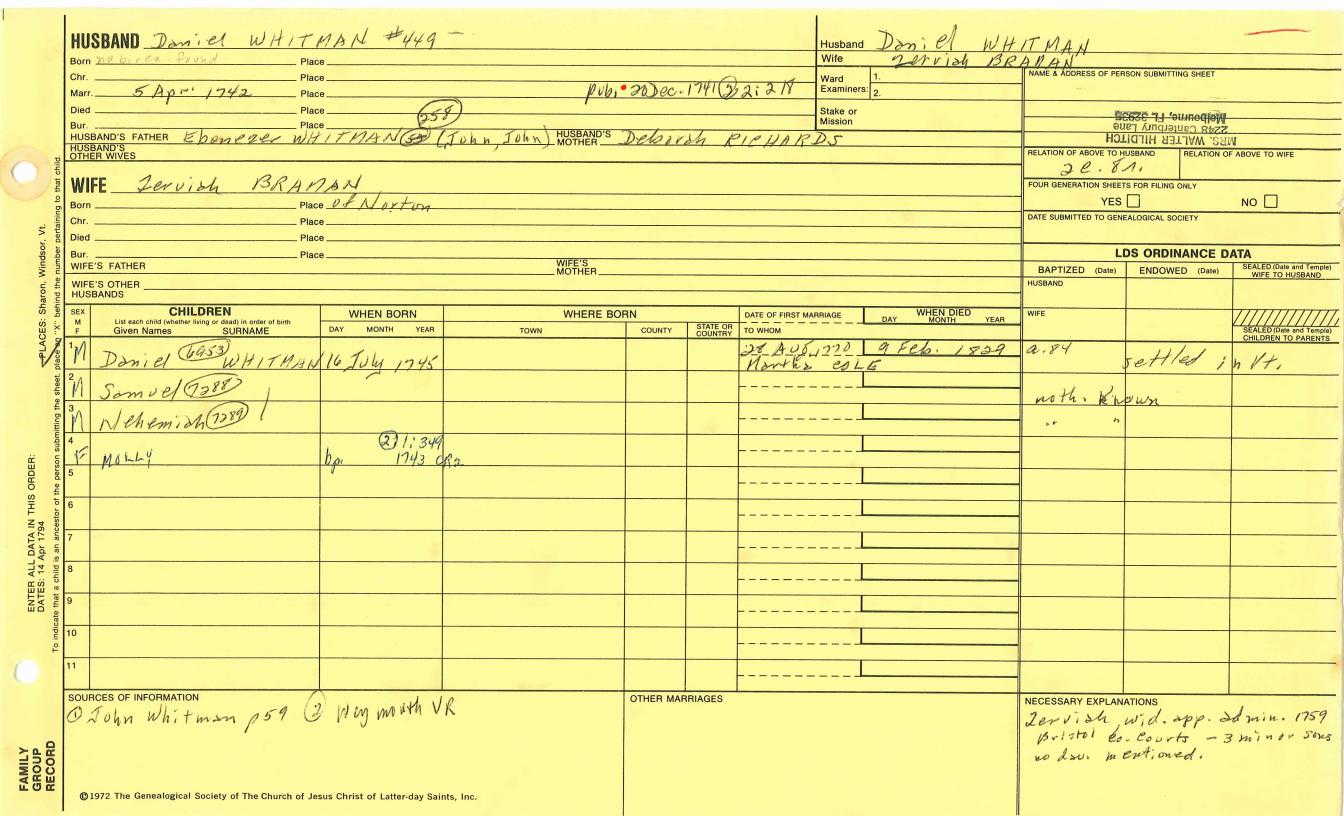 HUSBAND Daniel WHITMAN #449 —
Born no birth found Place
Chr. Place
Marr. 5 Apr. 1742 Place pub. 20 Dec. 1741 (2) 2:218
Died Place
Bur. Place
258
HUSBAND'S FATHER Ebenezer WHITMAN (John, John) HUSBAND'S MOTHER Deborah RICHARDS
HUSBAND'S OTHER WIVES
WIFE Zerviah BRAMAN
Born Place of Norton
Chr. Place
Died Place
Bur. Place
WIFE'S FATHER WIFE'S MOTHER
WIFE'S OTHER HUSBANDS
Husband Daniel WHITMAN
Wife Zerviah BRAMAN
Ward Examiners: 1.
2.
Stake or Mission
NAME & ADDRESS OF PERSON SUBMITTING SHEET
MRS. WALTER HILDITCH
2248 Canterbury Lane
Melbourne, FL 32935
RELATION OF ABOVE TO HUSBAND RELATION OF ABOVE TO WIFE
FOUR GENERATION SHEETS FOR FILING ONLY
YES NO
DATE SUBMITTED TO GENEALOGICAL SOCIETY
LDS ORDINANCE DATA
BAPTIZED (Date) ENDOWED (Date) SEALED (Date and Temple) WIFE TO HUSBAND
HUSBAND
WIFE
SEALED (Date and Temple) CHILDREN TO PARENTS
SEX M F
CHILDREN
List each child (whether living or dead) in order of birth
Given Names SURNAME
WHEN BORN
DAY MONTH YEAR
WHERE BORN
TOWN COUNTY STATE OR COUNTRY
DATE OF FIRST MARRIAGE
TO WHOM
WHEN DIED
DAY MONTH YEAR
1 M Daniel 6953 WHITMAN 16 July 1745 28 Aug 1770 9 Feb. 1829 a. 84 settled in Vt.
Martha COLE
2 M Samuel 7288 noth. known
3 M Nehemiah 7289 " "
4 F MOLLY bp. 1743 CR2
(2) 1:349
5
6
7
8
9
10
11
SOURCES OF INFORMATION
(1) John Whitman p59 (2) Weymouth VR
OTHER MARRIAGES
NECESSARY EXPLANATIONS
Zerviah, wid. app. admin. 1759
Bristol Co. Courts — 3 minor sons
no dau. mentioned.
©1972 The Genealogical Society of The Church of Jesus Christ of Latter-day Saints, Inc.
ENTER ALL DATA IN THIS ORDER:
DATES: 14 Apr 1794
PLACES: Sharon, Windsor, Vt.
To indicate that a child is an ancestor of the person submitting the sheet, place an "X" behind the number pertaining to that child.
FAMILY
GROUP
RECORD